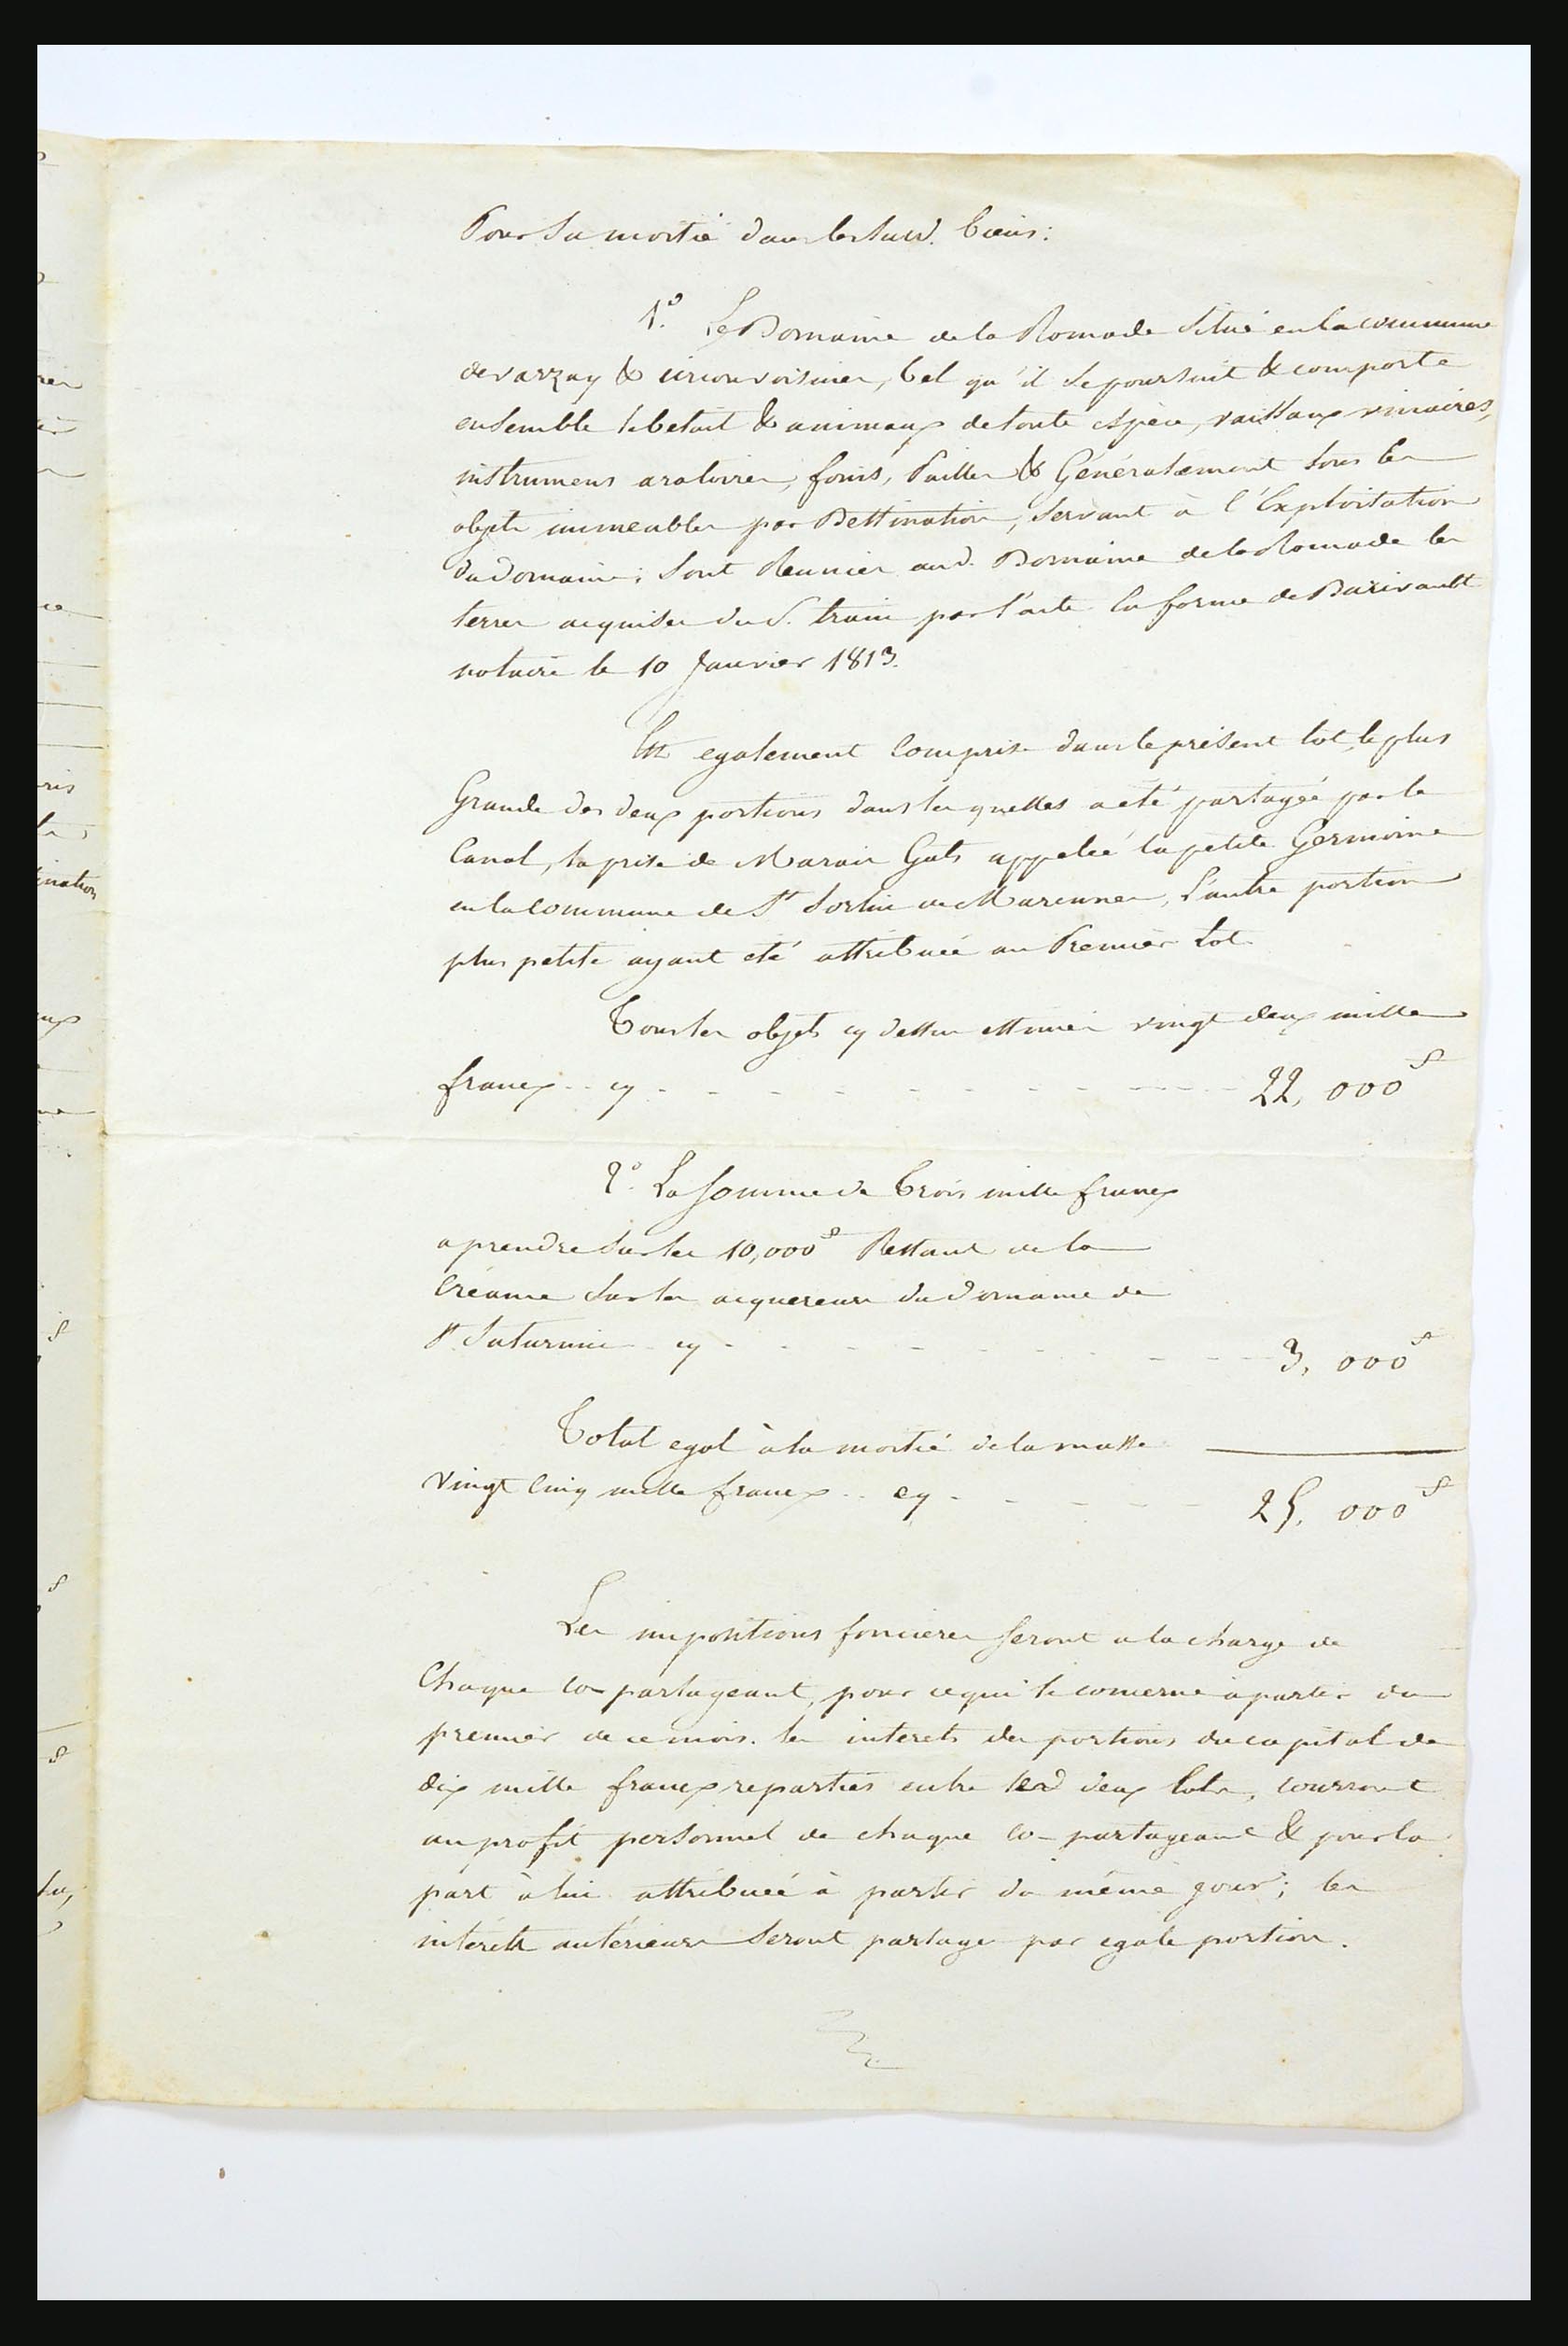 Pour sa moitié dans les susd. biens:
1.° Le Domaine de la Romade situé en la commune
de varzay & circonvoisines, tel qu'il se poursuit & comporte
ensemble le betail & animaux de toute espèce, vaissaux vinaires,
instrumens aratoires, foins, Pailles & Généralement tous les
objets immeubles par Destination, servant à l'Exploitation
du domaine; sont Reunies aud. Domaine de la Romade les
terres acquises du S. train par l'acte
notaire le 10 Janvier 1813.
Est egalement Comprise dans le présent lot, la plus
Grande des deux portions dans lesquelles a été partagée par le
Canal, la prise de Marais Gats appelée la petite Germoine
en la commune de St Sorlin de Marennes, L'autre portion
plus petite ayant été attribuée au Premier Lot.
Tous les objets cy dessus estimés vingt deux mille
francs cy - - - - - 22,000f
2.° La somme de Trois mille francs
a prendre sur les 10,000f Restant de la
Créance sur les acquereurs du Domaine de
St Saturnin cy - - - - - 3,000f
Total egal à la moitié de la masse
vingt Cinq mille francs cy - - - - 25,000f
Les impositions foncieres seront a la charge de
Chaque co-partageant, pour ce qui le concerne a partir du
premier de ce mois. les interets des portions du capital de
dix mille francs reparties entre lesd deux lots, courront
au profit personnel de chaque co-partageant & pour la
part à lui attribuée à partir du même jour; les
intérêts antérieurs seront partagé par egale portion.
nation